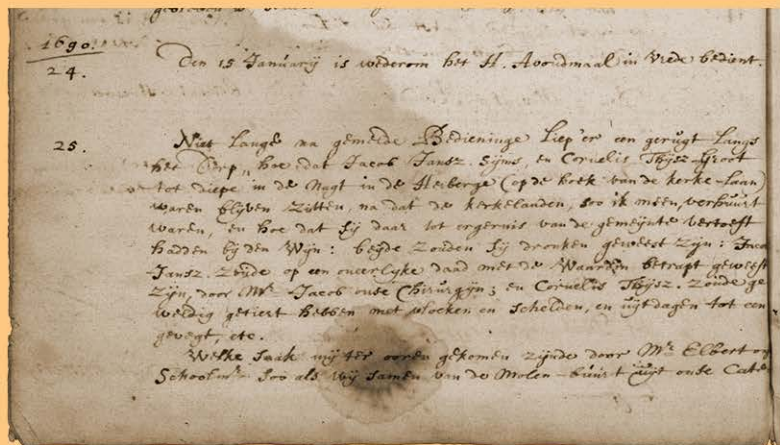 1690.
24. Den 15 Januarij is wederom het H. Avondmaal in vrede bedient.
25. Niet lange na gemelde Bedieninge liep'er een gerugt langs
het Dorp, hoe dat Jacob Jansz. Sijms, en Cornelis Thijsz Groot
tot diepe in de Nagt in de Herberge (op de hoek van de kerke-laan)
waren blijven zitten, na dat de kerkelanden, soo ik meen, verhuurt
waren, en hoe dat sij daar tot ergernis van de gemeijnte vertoeft
hadden bij den Wijn: beijde zouden sij dronken geweest zijn:
Jansz. zoude op een oneerlyke daad met de Waardin betrapt geweest
zijn, door Mr. Jacob onse Chirurgijn; en Cornelis Thijsz. zoude ge
weldig getiert hebben met vloeken en schelden, en uijtdagen tot een
gevegt, etc.
Welke saak mij ter ooren gekomen zijnde door Mr. Elbert
Schoolmr. soo als wij samen van de Molen-buurt uijt onse Cate